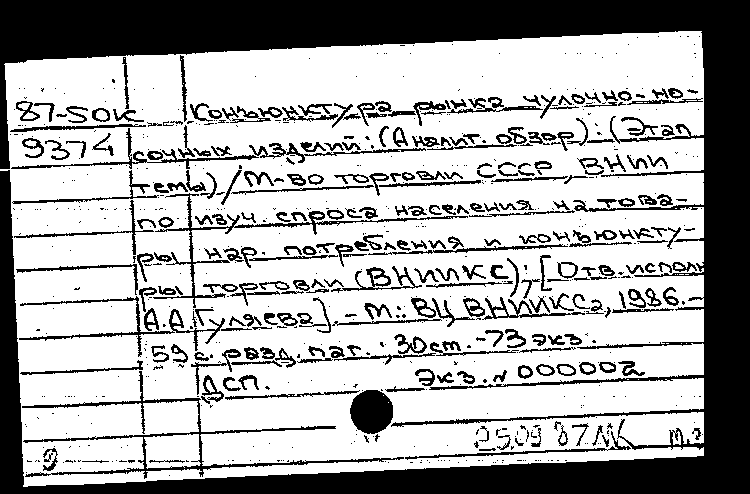 87-50К Конъюнктура рынка чулочно-но-
9374 сочных изделий: (Аналит. обзор): (Этап
темы) / М-во торговли СССР, ВНИИ
по изуч. спроса населения на това-
ры нар. потребления и конъюнкту-
ры торговли (ВНИИКС); [Отв. исполн.
А.А. Гуляева]. - М.: ВЦ ВНИИКСа, 1986. -
59 с. разд. паг. ; 30 см. - 73 экз.
ДСП. Экз. № 000002
25.09 87 МК